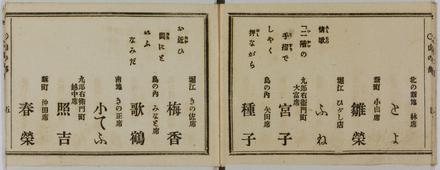 北の新地 林席
とよ
新町 小山席
雛榮
堀江 ひがし店
ふね
情歌
「二階の
手摺で
しやく
押ながら
九郎右衛門町
大富席
宮子
島の内 矢田席
種子
堀江 きの佐席
梅香
島の内 みなと席
歌鶴
お近ひ
間にと
いふ
なみだ
南地 きの正席
小てふ
九郎右衛門町
越中席
照吉
新町 仲田席
春榮
五